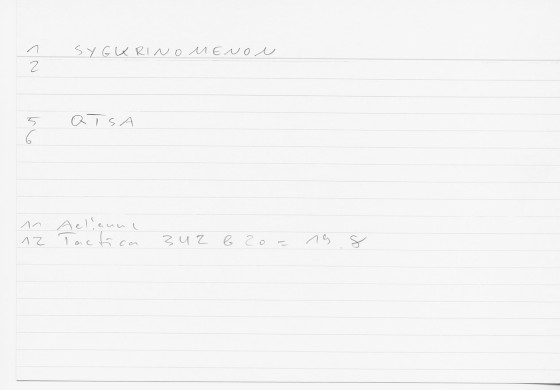 1 SYGKRINOMENON
2
5 OTSA
6
11 Aelianus
12 Tactica 342 b 20 = 19, 8